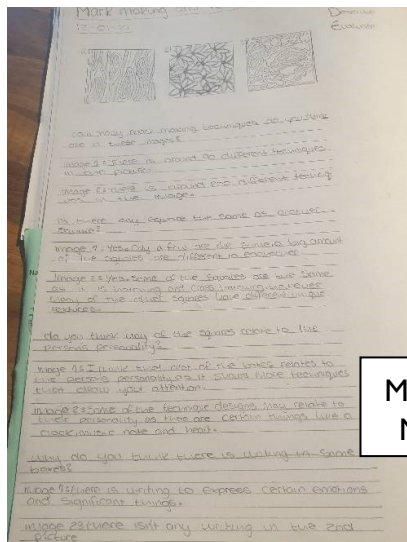 Mark making
how many mark making techniques do you think
are in these images?
Image 1: There is around 90 different techniques
in the picture.
Image 2: there is around 200 different
in the image.
Is there any square the same as another
square?
Image 1: Yes. Only a few are the same a large amount
of the squares are different to
Image 2: Yes. Some of the squares are the same
as it is hatching and cross hatching. However
many of the other squares have different unique
textures.
do you think any of the squares relate to the
persons personality?
Image 1: I think that most of the boxes relates to
the persons personality as it shows more techniques
that draw your attention.
Image 2: Some of the technique designs may relate to
their personality as there are certain things like a
clock, music note and heart.
Why do you think there is writing in some
boxes?
Image 1: there is writing to express certain emotions
and significant things.
Image 2: there isn't any writing in the 2nd
picture
M